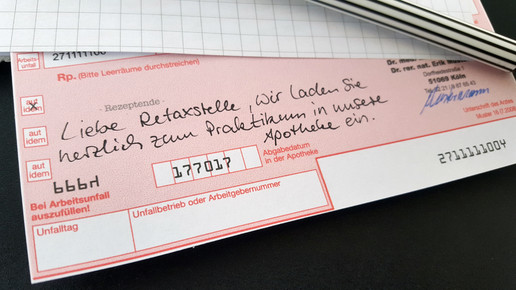 Arbeits-
unfall
271111100
Rp. (Bitte Leerräume durchstreichen)
Dr. rer. nat. Erik
51069 Köln
aut
idem
- Rezeptende -
Liebe Retaxstelle, wir laden Sie
herzlich zum Praktikum in unsere
Apotheke ein.
aut
idem
aut
idem
Unterschrift des Arztes
Muster 16 (7.2008)
177017
Abgabedatum
in der Apotheke
2711111004
Bei Arbeitsunfall
auszufüllen!
Unfalltag
Unfallbetrieb oder Arbeitgebernummer